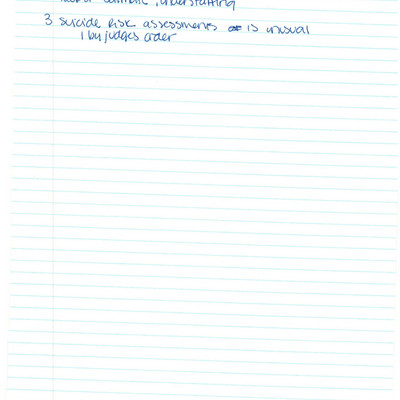 understaffing
3 suicide risk assessments is unusual
1 by judges order